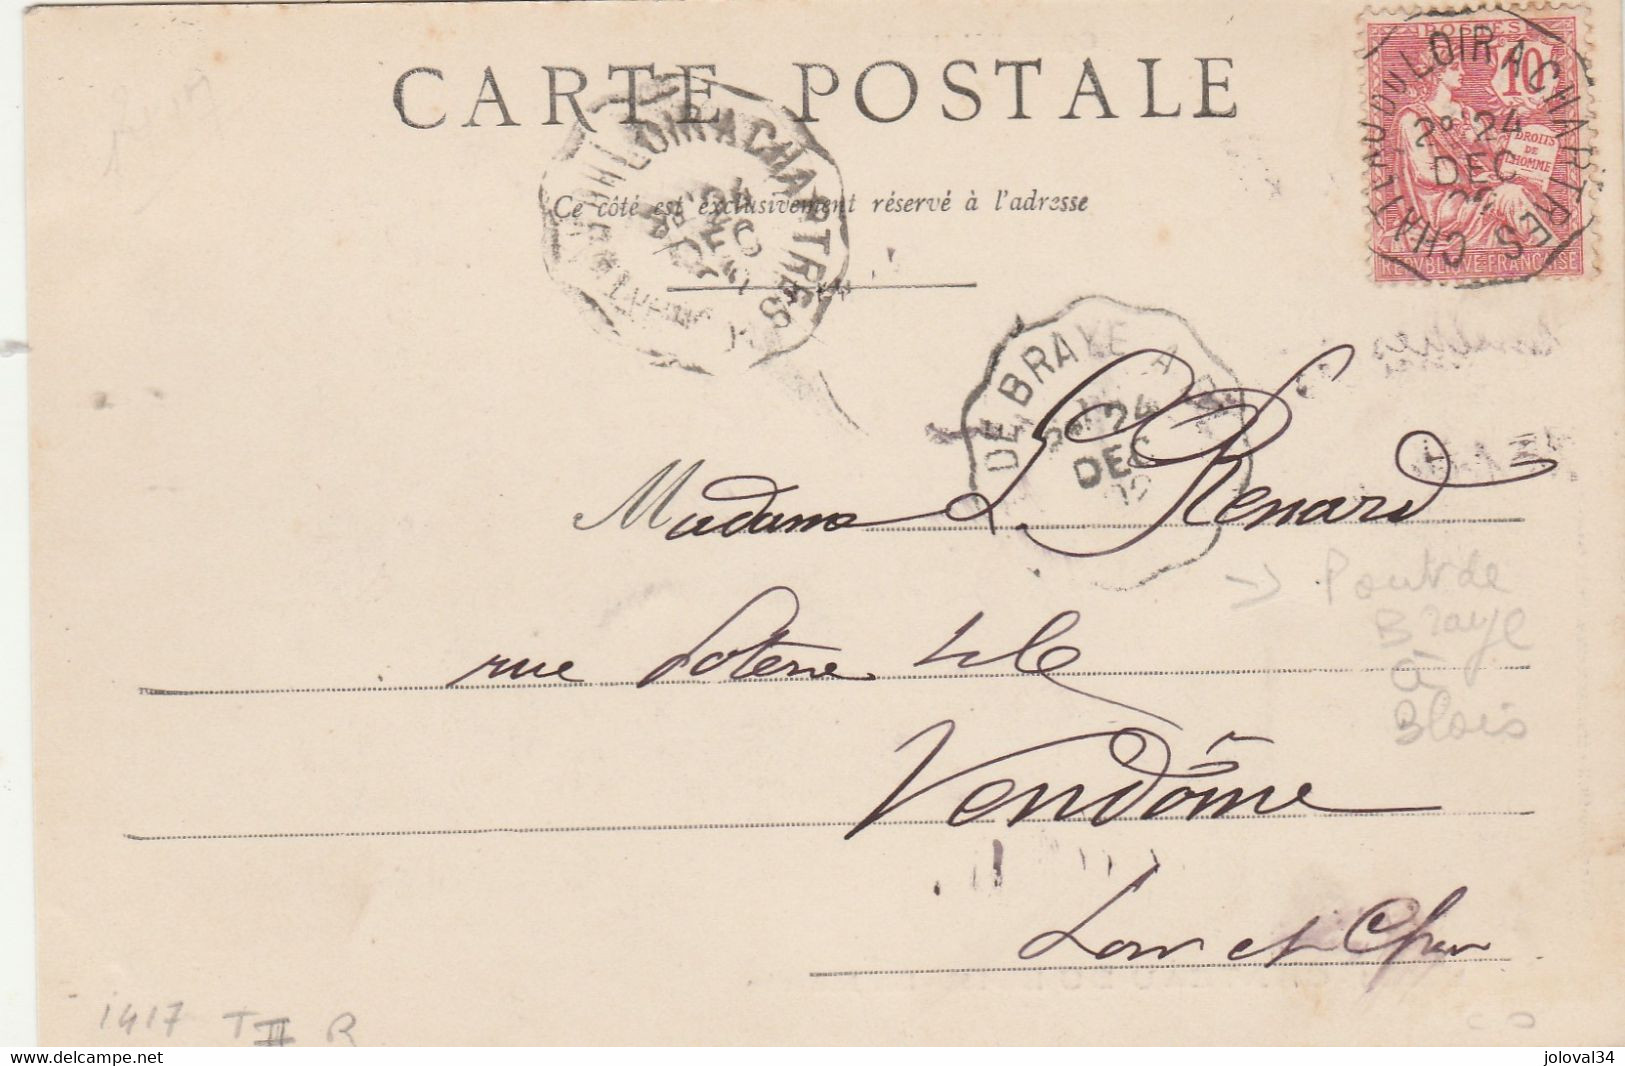 CARTE POSTALE
Ce côté est exclusivement réservé à l'adresse
POSTES
10
DROITS
DE
L'HOMME
REPUBLIQUE FRANÇAISE
CHATEAU DU LOIR A CHARTRES
2° 24
DEC
02
LOIR A CHARTRES
24
DEC
DE BRAYE A
24
DEC
02
Madame L. Renard
rue Poterie
Vendôme
Loir et Cher
→ Pont de
Braye
à
Blois
1417 T III R
joloval34